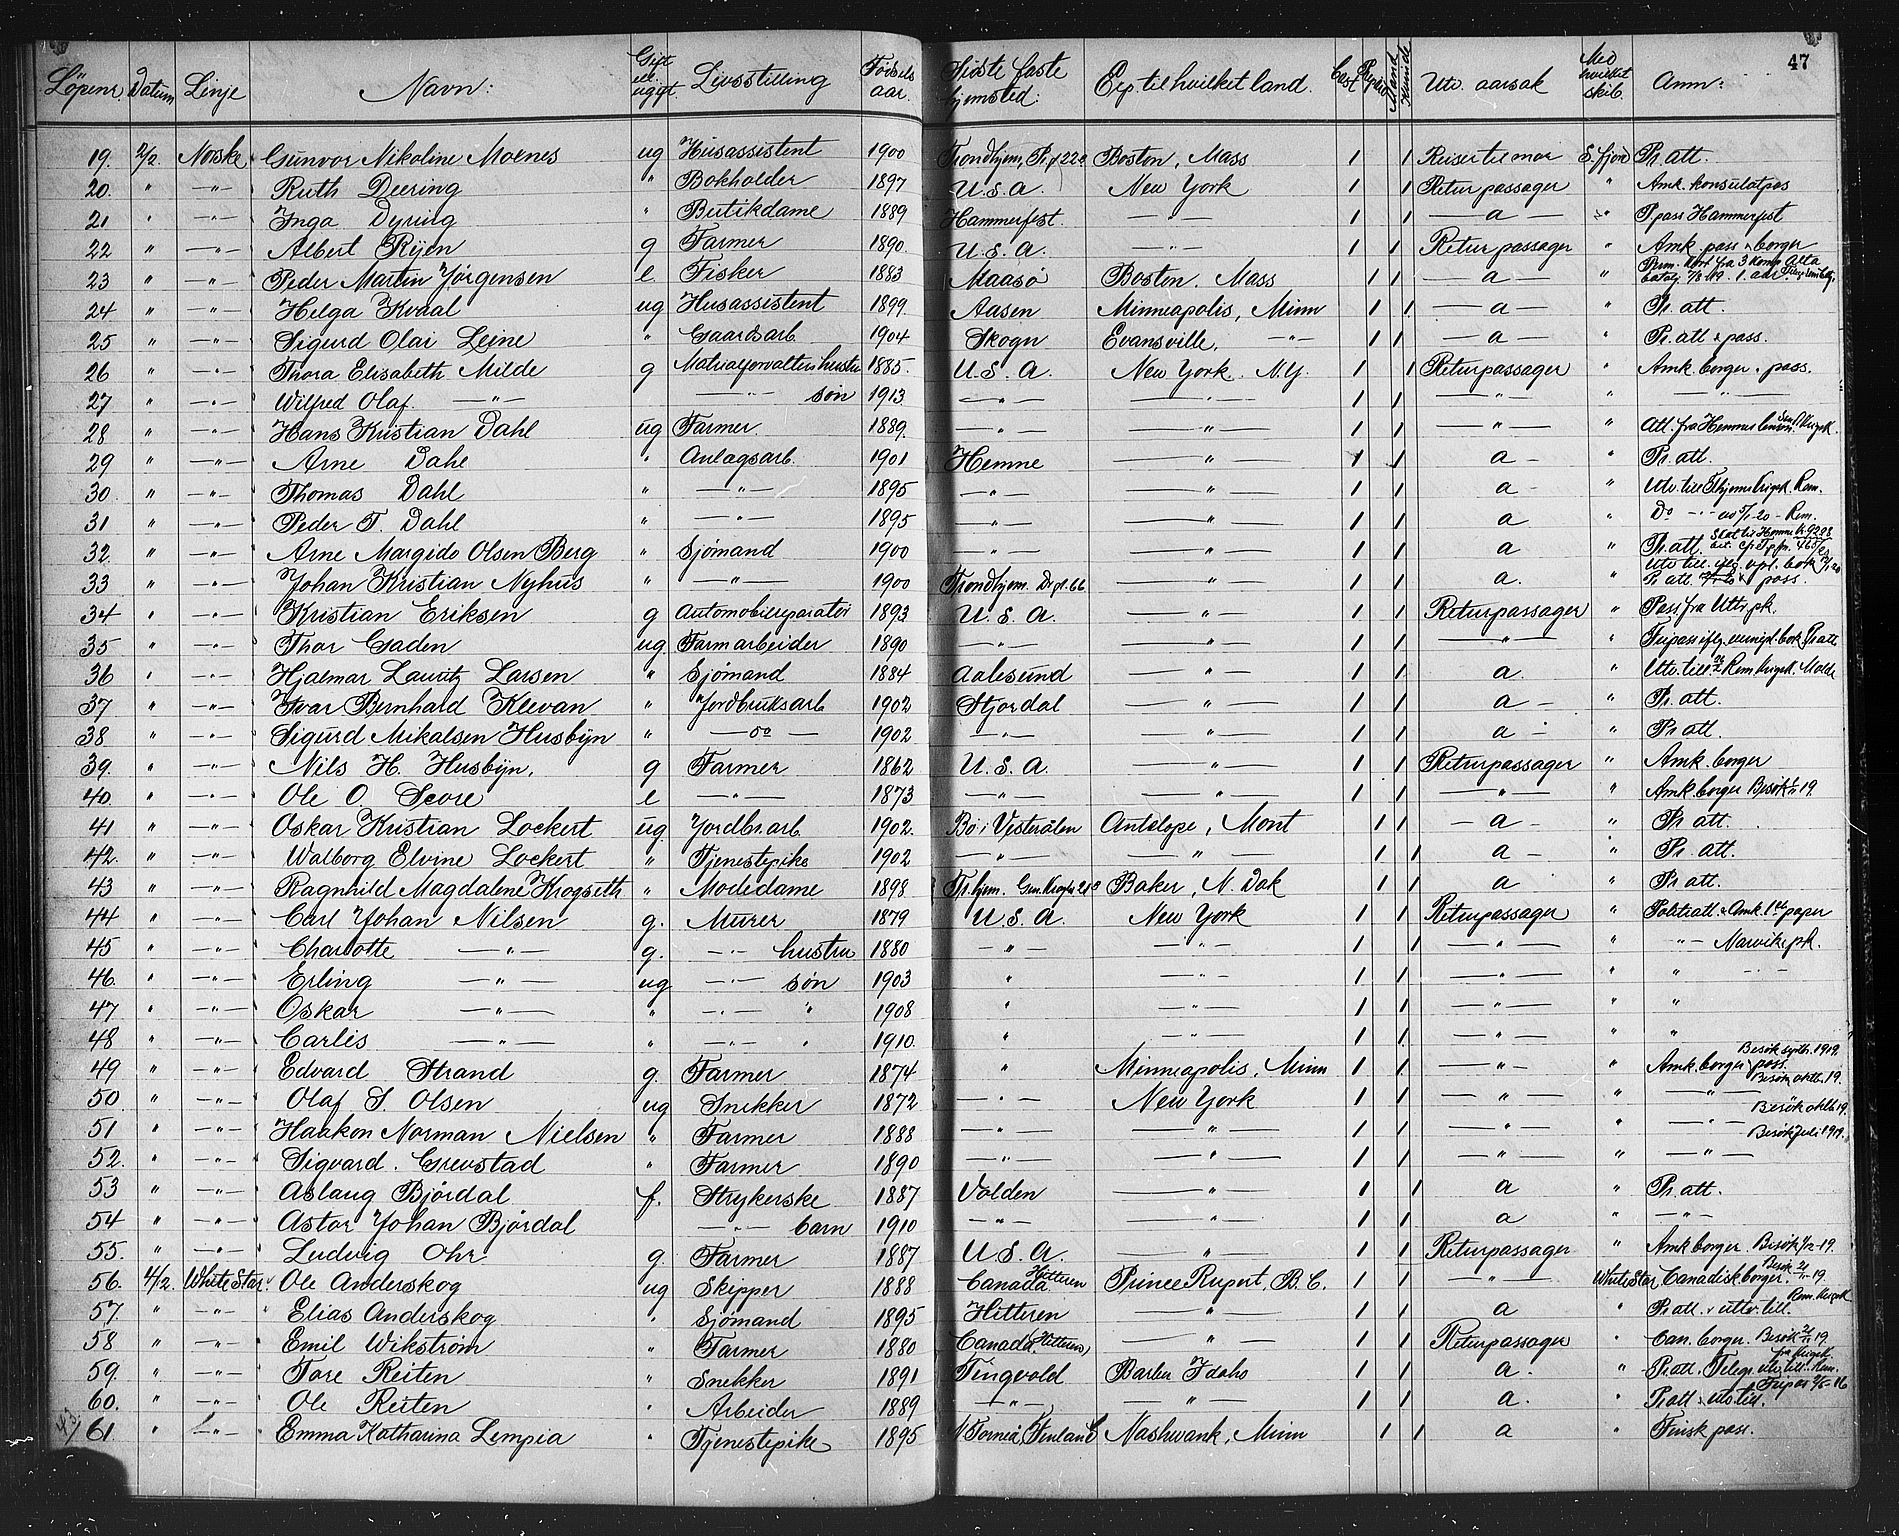 47
Löpenr. Datum Linje Navn: Gift el. ugift. Livsstilling Födsels aar. Sidste faste hjemsted: Exp. til hvilket land. Mand Kvinde Utv. aarsak Med hvilket skib. Anm:
19. 2/2 Norske Gunvor Nikoline Moenes ug Husassistent 1900 Trondhjem, Boston, Mass 1 1 Reiser til mor S.fjord Pr. att.
20. " —"— Ruth Deering " Bokholder 1897 U.S.A. New York 1 1 Returpassager " Amk. konsulatpas
21 " —"— Inga Dyring " Butikdame 1889 Hammerfest —"— 1 1 — a — " Ppass Hammerfest
22 " —"— Albert Ryen g Farmer 1890 U.S.A. —"— 1 1 Returpassager " Amk. pass & borger
23 " —"— Peder Martin Jörgensen e. Fisker 1883 Maasö Boston. Mass 1 1 — a — " fra 3 komp Alta
24 " —"— Helga Kvaal ug Husassistent 1899. Aasen Minneapolis, Minn 1 1 a — " Pr. att.
25 " —"— Sigurd Olai Leine " Gaardsarb. 1904 Skogn Evansville, —"— 1 1 — a — " Pr. att & pass.
26 " —"— Thora Elisabeth Milde g Matrialforvalters hustru 1885. U.S.A. New York. N.Y. 1 1 Returpassager " Amk. borger & pass.
27 " —"— Wilfred Olaf. —"— —"— sön 1913 —"— —"— 1 1 —"— " —"—
28 " —"— Hans Kristian Dahl ug Farmer. 1889. —"— —"— 1 1 —"— " Att. fra Hemnes
29 " —"— Arne Dahl " Anlagsarb. 1901 Hemne —"— 1 1 a — " Pr. att.
30. " —"— Thomas Dahl " —"— 1895 —"— —"— 1 1 a — " Utv. till. Rem.
31 " —"— Peder T. Dahl " —"— 1895 —"— —"— 1 1 a " Do —"— Rem.
32. " —"— Arne Margido Olsen Berg " Sjömand 1900 —"— —"— 1 1 a " Pr. att.
33 " —"— Johan Kristian Nyhus " —"— 1900 Trondhjem. —"— 1 1 a. " Pr att. & pass.
34 " —"— Kristian Eriksen g Automobilreparatör 1893 U.S.A. —"— 1 1 Returpassager " Pass fra Uttr.pk.
35 " —"— Thor Gaden ug Farmarbeider 1890 —"— —"— 1 1 —"— " Pr att
36 " —"— Hjalmar Lauritz Larsen " Sjömand 1884 Aalesund —"— 1 1 a " Utv. till. Molde
37 " —"— Ivar Bernhard Klevan " Jordbruksarb 1902 Stjordal —"— 1 1 a — " Pr. att.
38 " —"— Sigurd Mikalsen Husbyn " — do — 1902 —"— —"— 1 1 a — " Pr att.
39. " —"— Nils H. Husbyn. g Farmer 1862 U.S.A. —"— 1 1 Returpassager " Amk. borger
40. " —"— Ole O. Score e —"— 1873 —"— —"— 1 1 —"— " Amk. borger Besök 19.
41 " —"— Oskar Kristian Lockert ug Jordbr.arb 1902. Bö i Vesterålen Antelope, Mont 1 1 — a — " Pr. att.
42. " —"— Walborg Elvine Lockert " Tjenestepike 1902 —"— —"— 1 1 a — " Pr. att.
43 " —"— Ragnhild Magdalene Krogseth " Modedame 1898 Tr.hjem. Baker, N. Dak 1 1 a " Pr att.
44 " —"— Carl Johan Nilsen g. Murer 1879 U.S.A. New York 1 1 Returpassager " Politiatt. & Amk. 1st paper
45 " —"— Charlotte —"— g. —"— hustru 1880 —"— —"— 1 1 —"— " —"— Narvik pk.
46. " —"— Erling —"— ug —"— sön 1903 " —"— 1 1 —"— " " —"—
47 " —"— Oskar —"— " —"— " 1908 " —"— 1 1 —"— " "
48 " —"— Carlis —"— " —"— " 1910. " —"— 1 1 —"— " "
49 " —"— Edvard Strand g. Farmer 1874 " Minneapolis, Minn 1 1 —"— " Amk. borger & pass. Besök septb. 1919.
50. " —"— Olaf S. Olsen ug Snekker 1872 —"— New York 1 1 —"— " —"— Besök oktb. 19.
51 " —"— Haakon Norman Nielsen " Farmer 1888 —"— —"— 1 1 —"— " —"— Besök oktb 19.
52. " —"— Sigvard. Grevstad " Farmer 1890 —"— —"— 1 1 —"— " —"— Besök Juli 1919.
53 " —"— Aslaug Björdal f. Strykerske 1887 Volden —"— 1 1 a " Pr. att.
54 " —"— Astor Johan Björdal —"— barn 1910 —"— —"— 1 1 a " —"—
55. " —"— Ludvig Ohr g. Farmer 1887 U.S.A. —"— 1 1 Returpassager " Amk borger. Besök 1/12-19.
56. 4/2 White Star Ole Anderskog ug Skipper 1888 Canada Hitteren Prince Rupert, B.C. 1 1 —"— White Star Canadisk borger. Besök 21/11-19
57. " —"— Elias Anderskog " Sjömand 1895 Hitteren —"— 1 1 a " Pr. att. & utv. till.
58 " —"— Emil Wikström " Farmer 1880 Canada (Hitteren) —"— 1 1 Returpassager " Can. borger. Besök 21/11 19
59. " —"— Tore Reiten " Snekker 1891 Tingvold Idaho 1 1 a. " Pr. att. utv. till. Rem.
60. " —"— Ole Reiten " Arbeider 1889 —"— —"— 1 1 a. " Pr att & utv till.
61 " —"— Emma Katharina Lempia " Tjenestepike 1895 N. Torneå, Finland Nashwauk, Minn 1 1 a " Finsk pass.